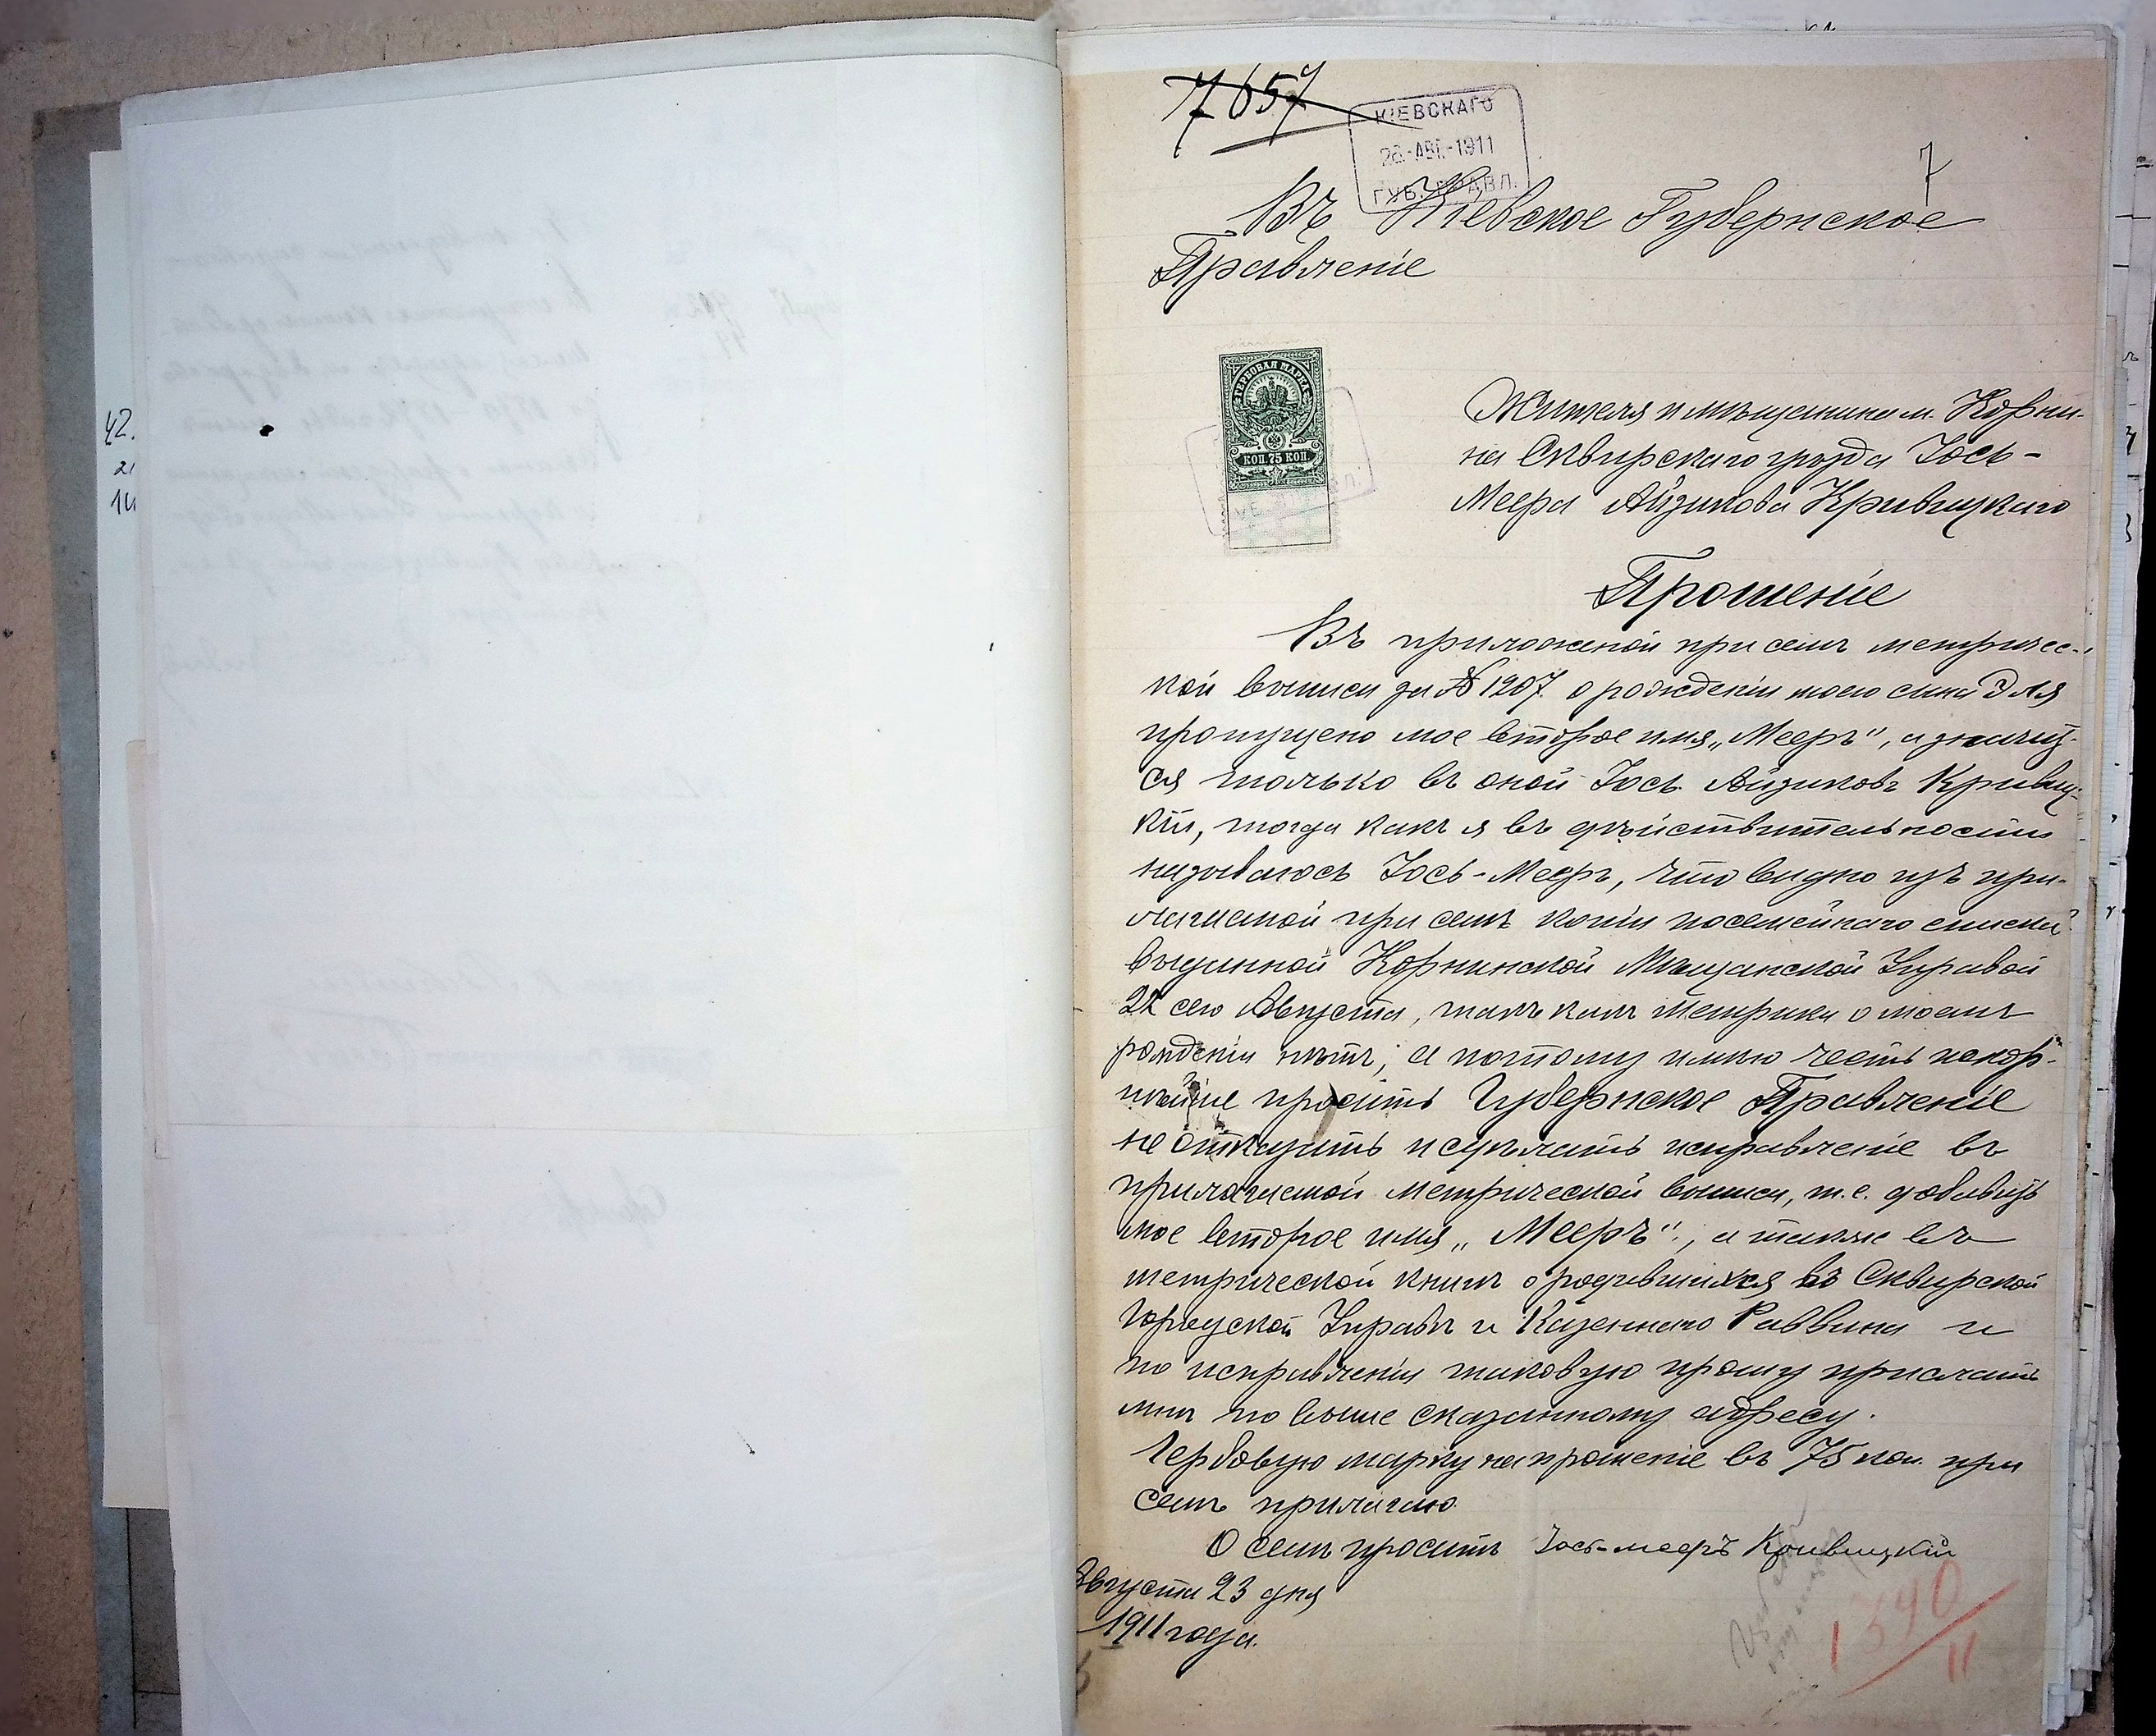 7657
КІЕВСКАГО
26-АВГ.-1911
ГУБ. ПРАВЛ.
7
Въ Кіевское Губернское
Правленіе
ГЕРБОВАЯ МАРКА
КОП. 75 КОП.
Жителя и мѣщанина м. Корни-
на Сквирскаго уѣзда Іось-
Меера Айзикова Кривицкаго
Прошеніе
Въ приложеной при семъ метричес-
кой выписи за № 1207. о рожденіи моего сына Эля
пропущено мое второе имя „Мееръ", а значит-
ся только въ оной Іось Айзиковъ Кривиц-
кій, тогда какъ я въ дѣйствительности
называюсь Іось-Мееръ, что видно изъ при-
лагаемой при семъ копіи посемейнаго списка
выданной Корнинской Мѣщанской Управой
22 сего Августа, такъ какъ метрики о моемъ
рожденіи нѣтъ, а потому имѣю честь покор-
нѣйше просить Губернское Правленіе
не отказать и сдѣлать исправленіе въ
прилагаемой метрической выписи, т.е. добавить
мое второе имя „Мееръ", а также въ
метрической книгѣ о родившихся въ Сквирской
Городской Управѣ и Казеннаго Раввина и
по исправленіи таковую прошу прислать
мнѣ по выше сказанному адресу.
Гербовую марку на прошеніе въ 75 коп. при
семъ прилагаю.
О семъ проситъ Іось-мееръ Кривицкій
Августа 23 дня
1911 года.
1390
11
42.
21